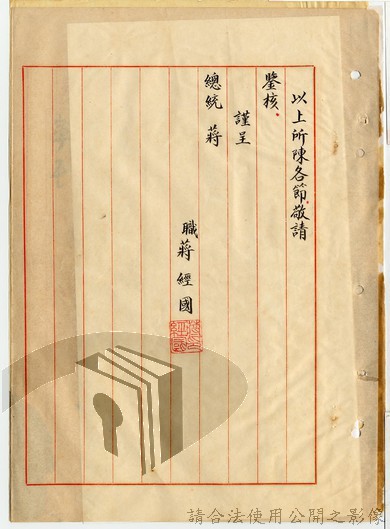 以上所陳各節敬請
鑒核
謹呈
總統 蔣
職蔣經國
請合法使用公開之影像